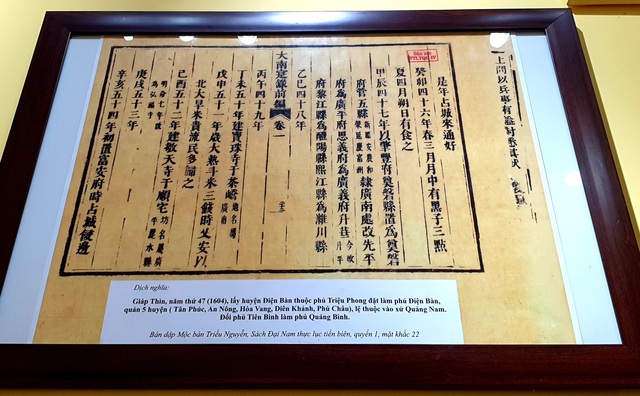 上問以兵事有
是年占城來通好
癸卯四十六年春三月月中有黑子三點
夏四月朔日有食之
甲辰四十七年以肇豐府奠磐縣置為奠磐
府管五縣新福安農和榮延慶富州隸廣南處改先平
府為廣平府思義府為廣義府升華今改升平
府黎江縣為醴陽縣熙江縣為濰川縣
乙巳四十八年
大南寔錄前編 卷一
丙午四十九年
丁未五十年建寶珠寺于茶嶠地名屬廣南
戊申五十一年歲大熟斗米三錢時乂安以
北大旱米貴流民多歸之
己酉五十二年建敬天寺于順宅坊名屬廣平麗水縣
明命七年改為
庚戌五十三年
辛亥五十四年初置富安府時占城侵邊
Dịch nghĩa:
Giáp Thìn, năm thứ 47 (1604), lấy huyện Điện Bàn thuộc phủ Triệu Phong đặt làm phủ Điện Bàn,
quản 5 huyện ( Tân Phúc, An Nông, Hòa Vang, Diên Khánh, Phú Châu), lệ thuộc vào xứ Quảng Nam.
Đổi phủ Tiên Bình làm phủ Quảng Bình.
Bản dập Mộc bản Triều Nguyễn, Sách Đại Nam thực lục tiền biên, quyển 1, mặt khắc 22